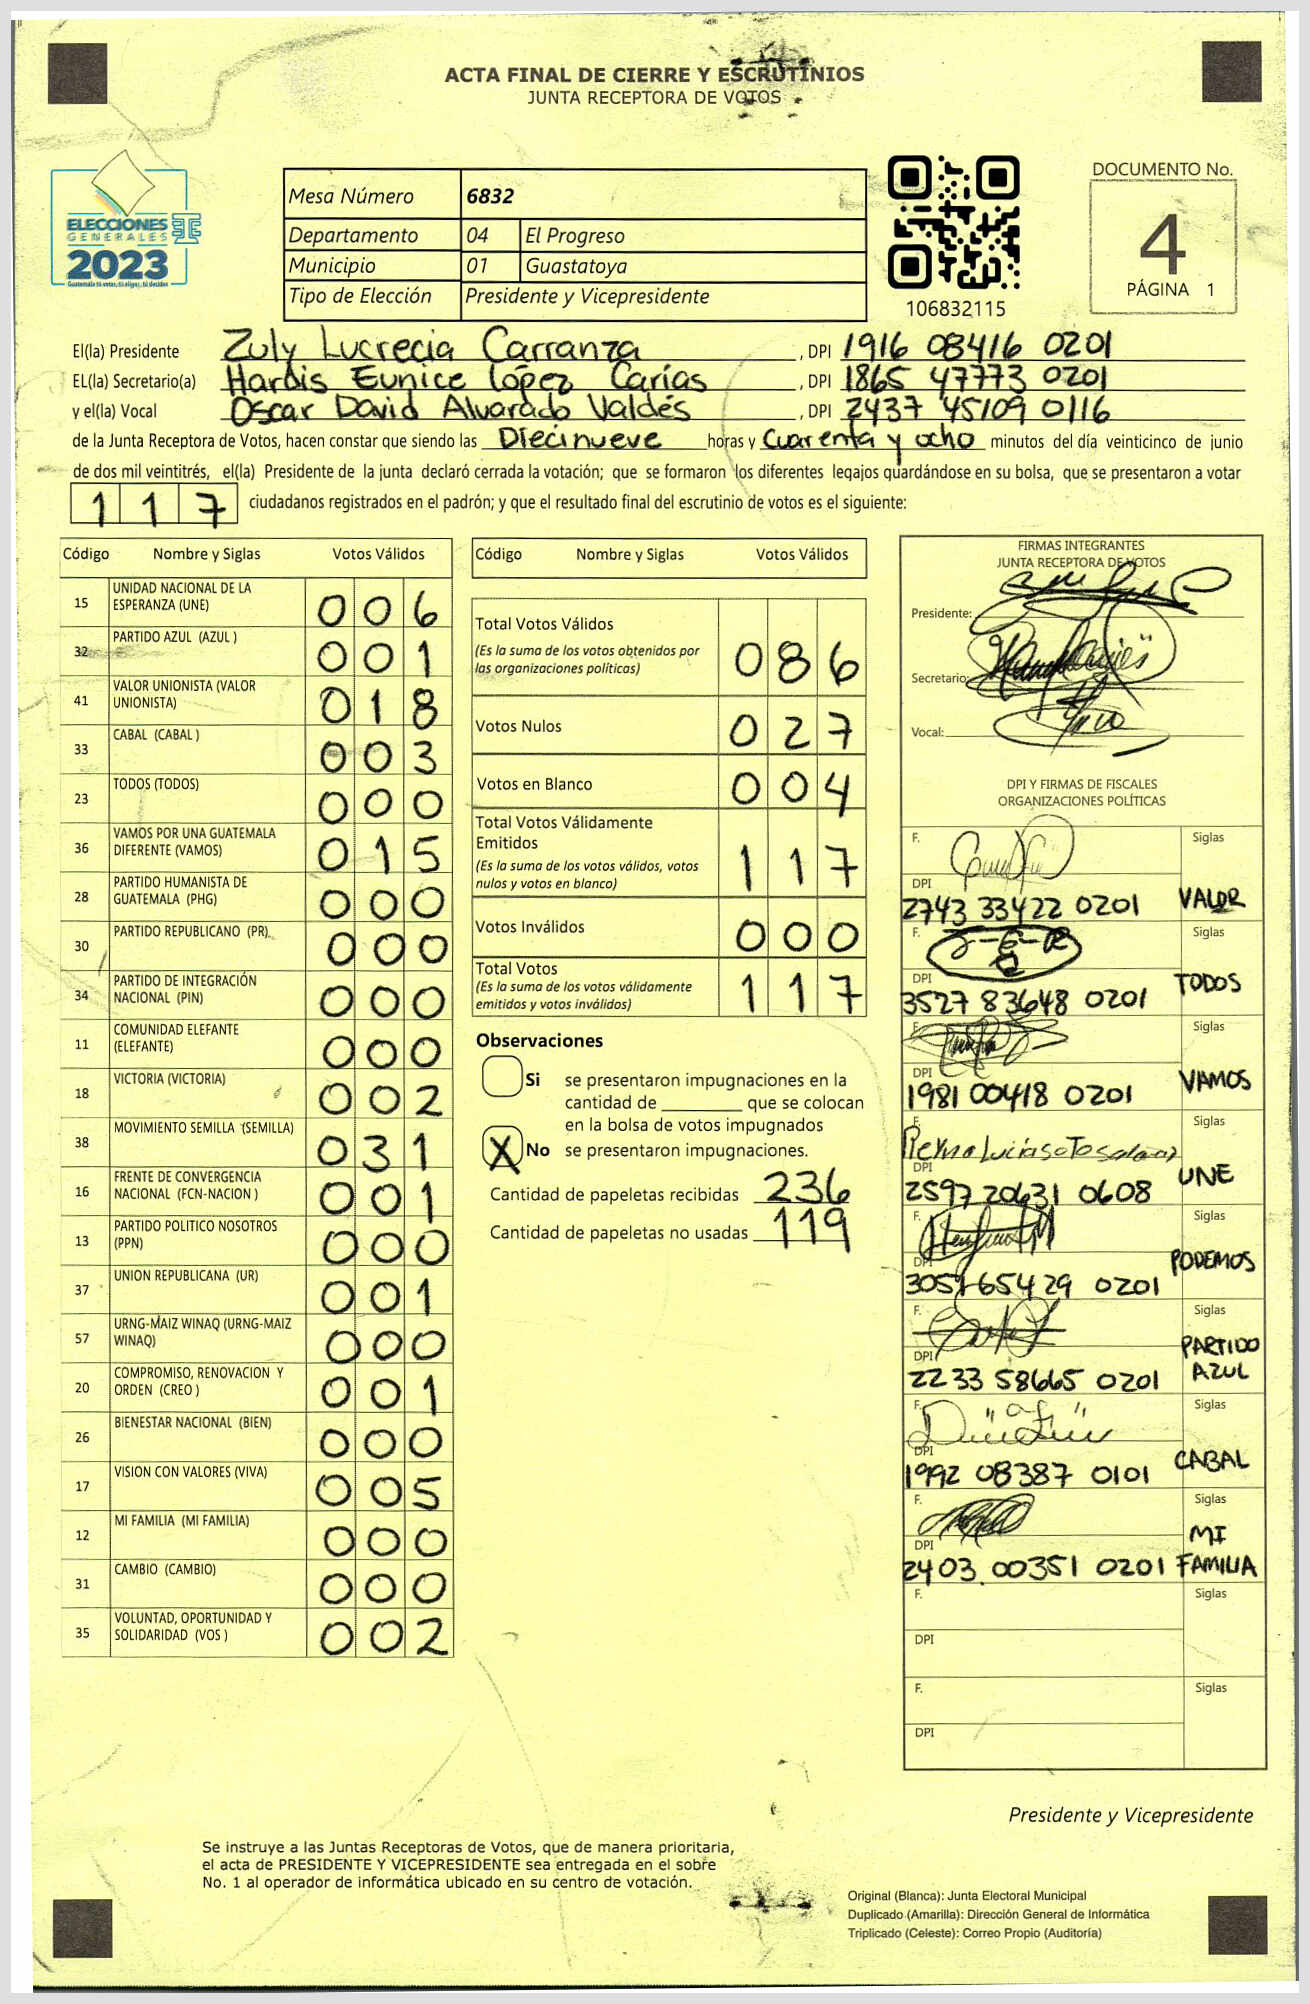 ACTA FINAL DE CIERRE Y ESCRUTINIOS
JUNTA RECEPTORA DE VOTOS
ELECCIONES
GENERALES
2023
Guatemala tú votas, tú eliges, tú decides
Mesa Número 6832
Departamento 04 El Progreso
Municipio 01 Guastatoya
Tipo de Elección Presidente y Vicepresidente
106832115
DOCUMENTO No.
4
PÁGINA 1
El(la) Presidente Zuly Lucrecia Carranza, DPI 1916 08416 0201
EL(la) Secretario(a) Hardis Eunice López Carías, DPI 1865 47773 0201
y el(la) Vocal Oscar David Alvarado Valdés, DPI 2437 45109 0116
de la Junta Receptora de Votos, hacen constar que siendo las Diecinueve horas y Cuarenta y ocho minutos del día veinticinco de junio
de dos mil veintitrés, el(la) Presidente de la junta declaró cerrada la votación; que se formaron los diferentes legajos guardándose en su bolsa, que se presentaron a votar
117 ciudadanos registrados en el padrón; y que el resultado final del escrutinio de votos es el siguiente:
Código Nombre y Siglas Votos Válidos
15 UNIDAD NACIONAL DE LA ESPERANZA (UNE) 006
32 PARTIDO AZUL (AZUL ) 001
41 VALOR UNIONISTA (VALOR UNIONISTA) 018
33 CABAL (CABAL ) 003
23 TODOS (TODOS) 000
36 VAMOS POR UNA GUATEMALA DIFERENTE (VAMOS) 015
28 PARTIDO HUMANISTA DE GUATEMALA (PHG) 000
30 PARTIDO REPUBLICANO (PR) 000
34 PARTIDO DE INTEGRACIÓN NACIONAL (PIN) 000
11 COMUNIDAD ELEFANTE (ELEFANTE) 000
18 VICTORIA (VICTORIA) 002
38 MOVIMIENTO SEMILLA (SEMILLA) 031
16 FRENTE DE CONVERGENCIA NACIONAL (FCN-NACION ) 001
13 PARTIDO POLITICO NOSOTROS (PPN) 000
37 UNION REPUBLICANA (UR) 001
57 URNG-MAIZ WINAQ (URNG-MAIZ WINAQ) 000
20 COMPROMISO, RENOVACION Y ORDEN (CREO ) 001
26 BIENESTAR NACIONAL (BIEN) 000
17 VISION CON VALORES (VIVA) 005
12 MI FAMILIA (MI FAMILIA) 000
31 CAMBIO (CAMBIO) 000
35 VOLUNTAD, OPORTUNIDAD Y SOLIDARIDAD (VOS ) 002
Código Nombre y Siglas Votos Válidos
Total Votos Válidos 086
(Es la suma de los votos obtenidos por
las organizaciones políticas)
Votos Nulos 027
Votos en Blanco 004
Total Votos Válidamente
Emitidos 117
(Es la suma de los votos válidos, votos
nulos y votos en blanco)
Votos Inválidos 000
Total Votos 117
(Es la suma de los votos válidamente
emitidos y votos inválidos)
Observaciones
Si se presentaron impugnaciones en la
cantidad de ________ que se colocan
en la bolsa de votos impugnados
X No se presentaron impugnaciones.
Cantidad de papeletas recibidas 236
Cantidad de papeletas no usadas 119
FIRMAS INTEGRANTES
JUNTA RECEPTORA DE VOTOS
Presidente:
Secretario:
Vocal:
DPI Y FIRMAS DE FISCALES
ORGANIZACIONES POLÍTICAS
F. Siglas
DPI
2743 33422 0201 VALOR
F. Siglas
DPI
3527 83648 0201 TODOS
F. Siglas
DPI
1981 00418 0201 VAMOS
F. Siglas
DPI
2597 20631 0608 UNE
F. Siglas
DPI
3051 65429 0201 PODEMOS
F. Siglas
DPI
2233 58665 0201 PARTIDO AZUL
F. Siglas
DPI
1992 08387 0101 CABAL
F. Siglas
DPI
2403 00351 0201 MI FAMILIA
F. Siglas
DPI
F. Siglas
DPI
Presidente y Vicepresidente
Se instruye a las Juntas Receptoras de Votos, que de manera prioritaria,
el acta de PRESIDENTE Y VICEPRESIDENTE sea entregada en el sobre
No. 1 al operador de informática ubicado en su centro de votación.
Original (Blanca): Junta Electoral Municipal
Duplicado (Amarilla): Dirección General de Informática
Triplicado (Celeste): Correo Propio (Auditoría)